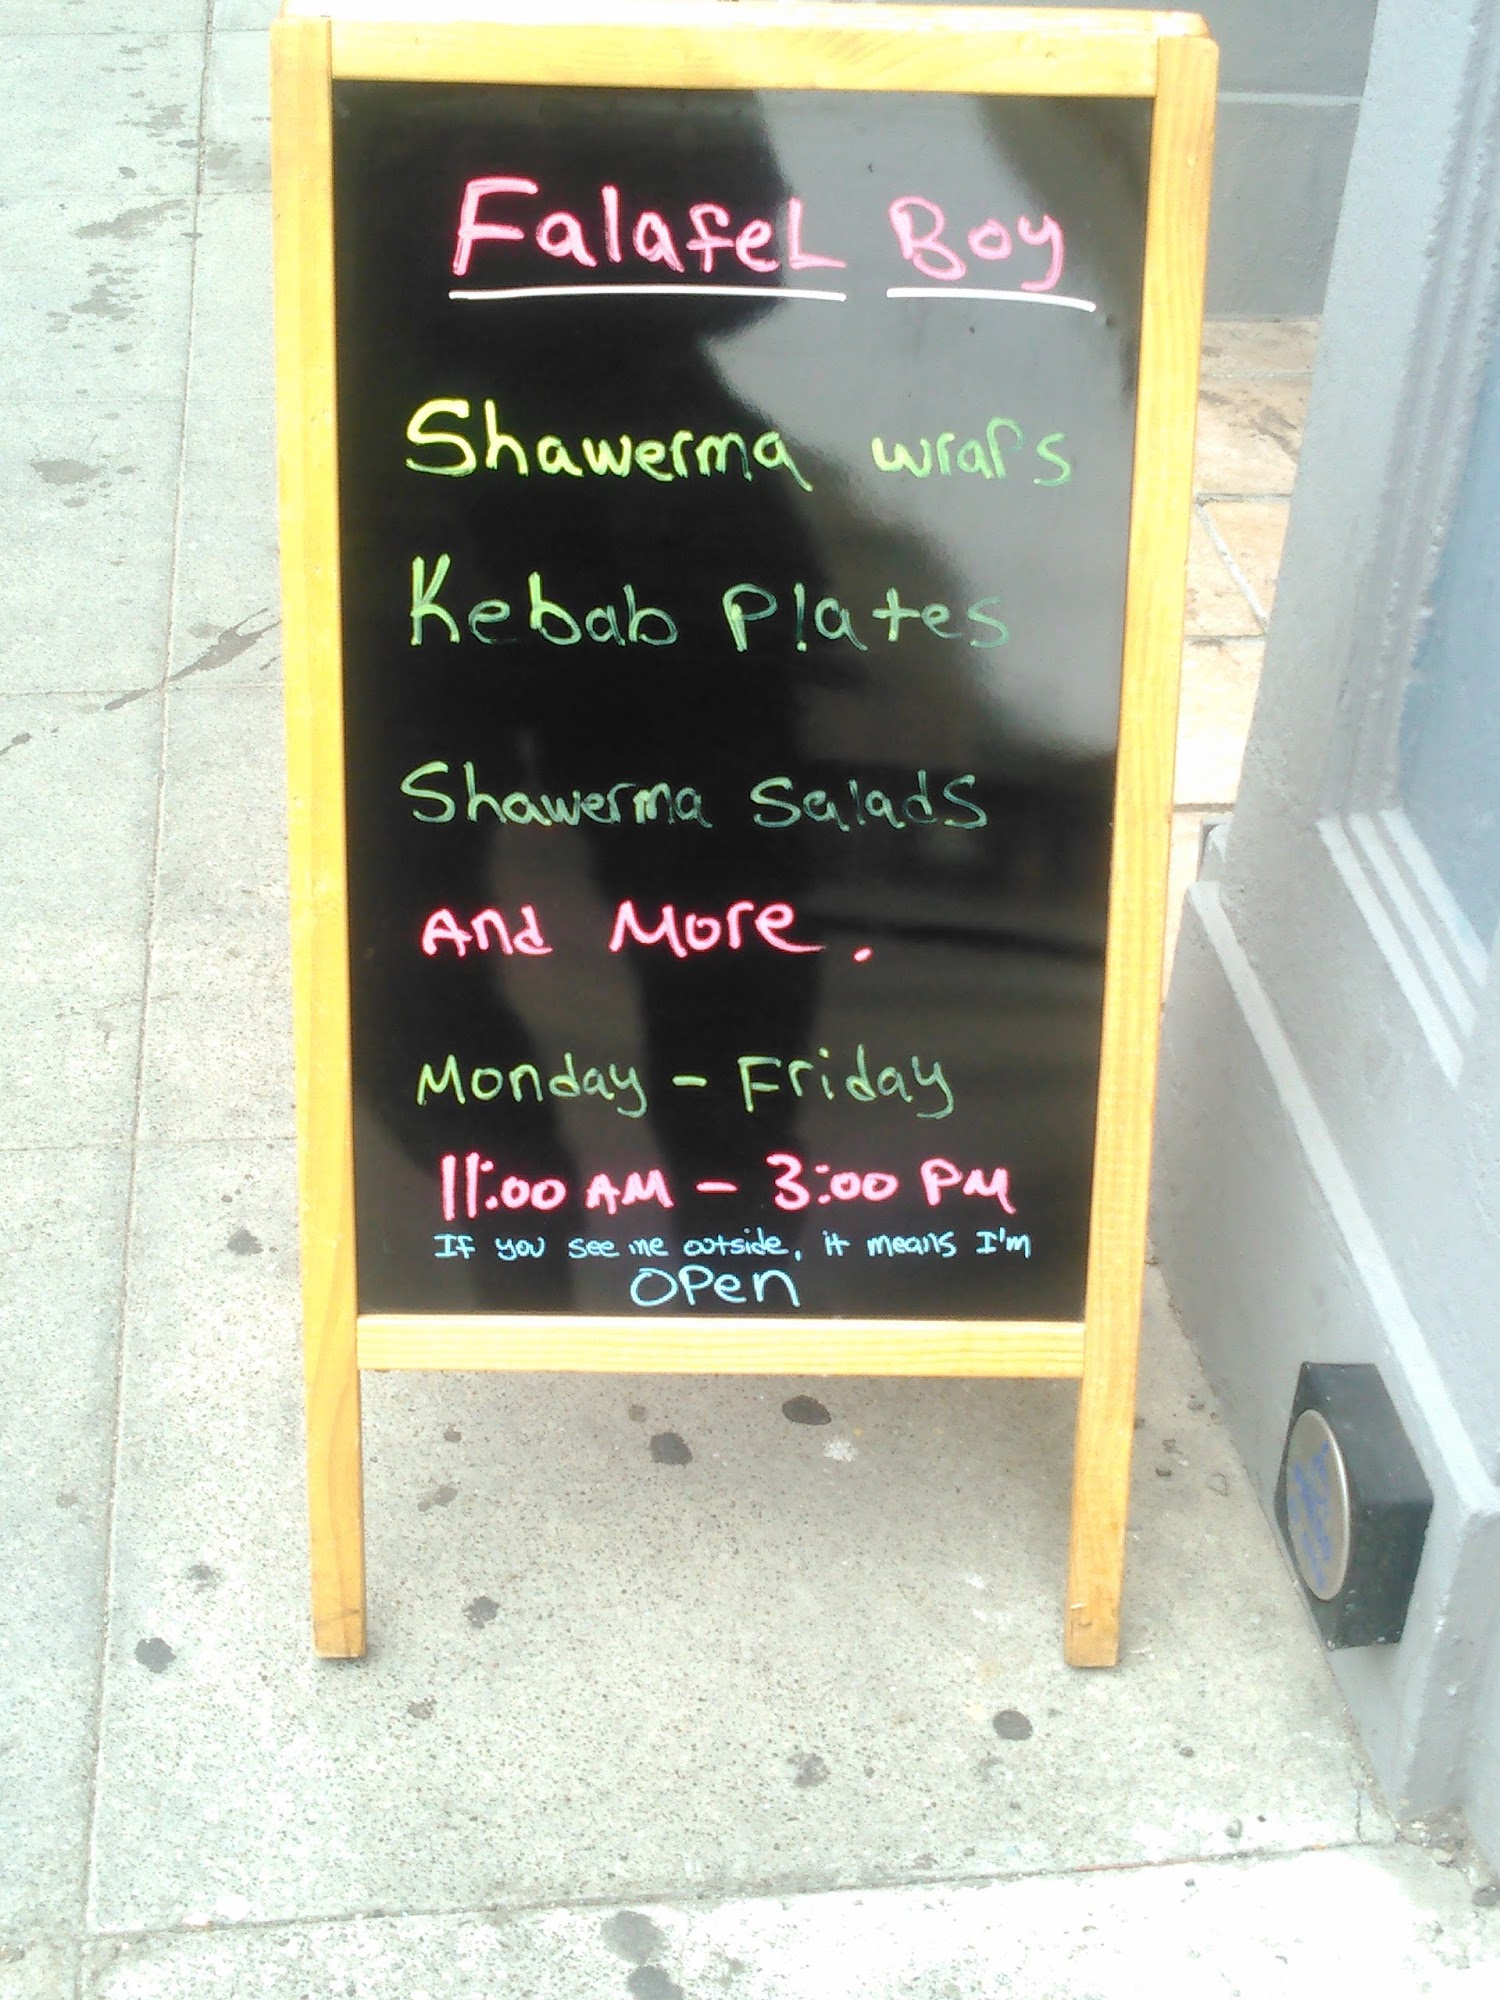 Falafel Boy
Shawerma wraps
Kebab Plates
Shawerma Salads
And More.
Monday - Friday
11:00 AM - 3:00 PM
If you see me outside, it means I'm
OPen